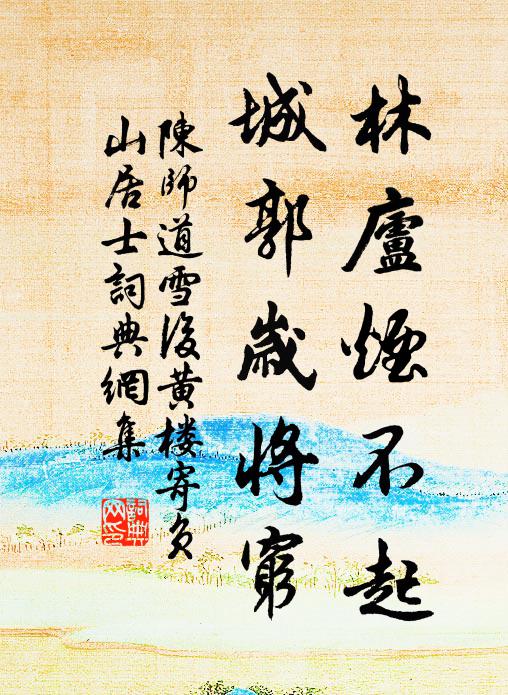 林廬煙不起
城郭歲將窮
陳師道雪後黄楼寄负
山居士詞典網集
詞典
网印